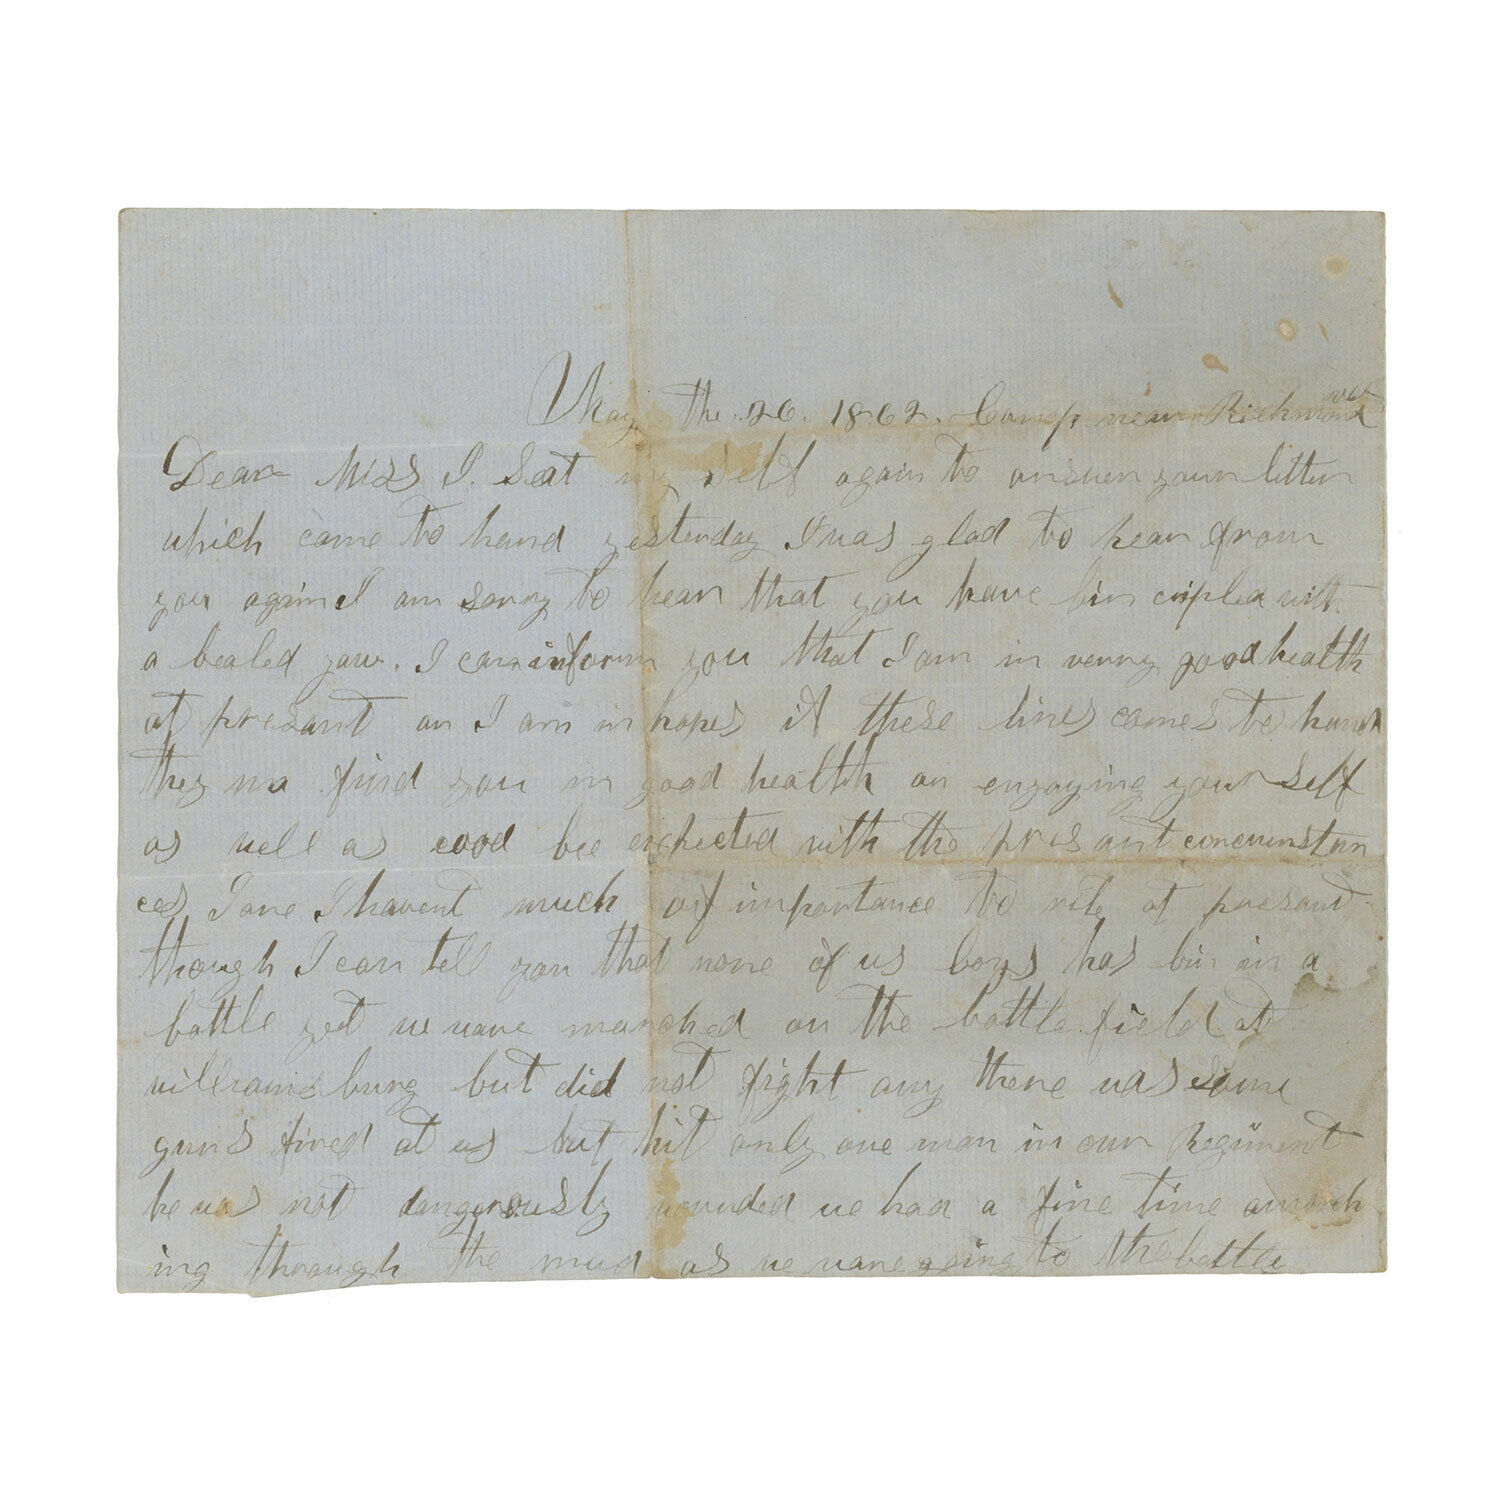 May the 26. 1862. Camp near Richmond va
Dear Miss I. Seat my self again to answer your letter
which came to hand yesterday I was glad to hear from
you again I am sorry to hear that you have bin cripled with
a bealed jaw. I can inform you that I am in verry good health
at presant an I am in hopes if these lines comes to hand
they ma find you in good health an engoying your self
as well as cood bee expected with the presant concurnstan
ces Jane I havent much of importance to rite at presant
though I can tell you that none of us boys has bin in a
battle yet we ware marched on the battle field at
williamsburg but did not fight any there was some
guns fired at us but hit only one man in our Regiment
he was not dangerously wounded we had a fine time a march
ing through the mud as we ware going to the battle